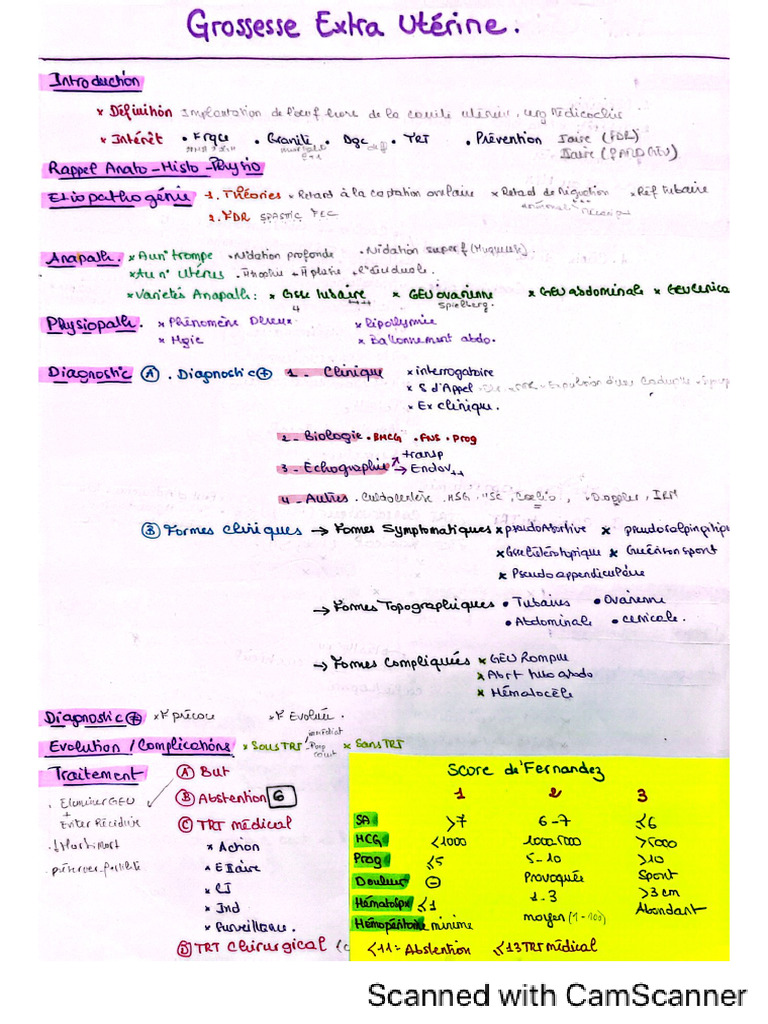 Grossesse Extra Utérine.
Introduction
× Définition Implantation de l'oeuf hors de la cavité utérine, urg Médicochir
× Intérêt • Frqce • Gravité • Dgc • TRT • Prévention Iaire (FDR)
IIaire
Rappel Anato-Histo-Physio
Etiopathogénie 1. Théories × Retard à la captation ovulaire × Retard de migration × Ref tubaire
2. FDR
Anapath. × Au nv trompe • Nidation profonde • Nidation superf (Muqueuse).
× Au nv utérus
× Variétés Anapath: × Gsse tubaire × GEU ovarienne × GEU abdominale × GEU cervica
4 ++ Spielberg.
Physiopath. × Phénomène Douleux × Lipothymie
× Hgie × Ballonnement abdo.
Diagnostic Ⓐ . Diagnostic ⊕ 1 - Clinique × interrogatoire
× S d'Appel
× Ex clinique.
2 - Biologie • BHCG • FNS • Prog
3 - Echographie ↗ transp
→ Endov ++
4 - Autres • Culdocentèse, HSG, Coelio, Doppler, IRM
Ⓑ Formes cliniques → Formes Symptomatiques × pseudo abortive × pseudosalpingitiq
× Gsse hétérotopique × Guérison spont
× Pseudo appendiculaire
→ Formes Topographiques • Tubaires • Ovarienne
• Abdominale • cervicale.
→ Formes Compliquées × GEU Rompue
× Abrt tubo abdo
× Hématocèle
Diagnostic ⊕ × F précoce × F Evoluée.
Evolution / Complications × Sous TRT × Sans TRT
Traitement Ⓐ But
• Eliminer GEU
+
Eviter Récidive
• préserver fertilité
Ⓑ Abstention 6
Ⓒ TRT médical
× Action
× E IIaire
× CI
× Ind
× Surveillance.
Ⓓ TRT chirurgical
Score de Fernandez
1 2 3
SA >7 6-7 ≤6
HCG <1000 1000-5000 >5000
Prog ≤5 5-10 >10
Douleur ⊖ Provoquée Spont
Hématolpx ≤1 1-3 >3cm
Hémopéritoine minime moyen (1-100) Abondant
<11 = Abstention ≤13 TRT médical
Scanned with CamScanner